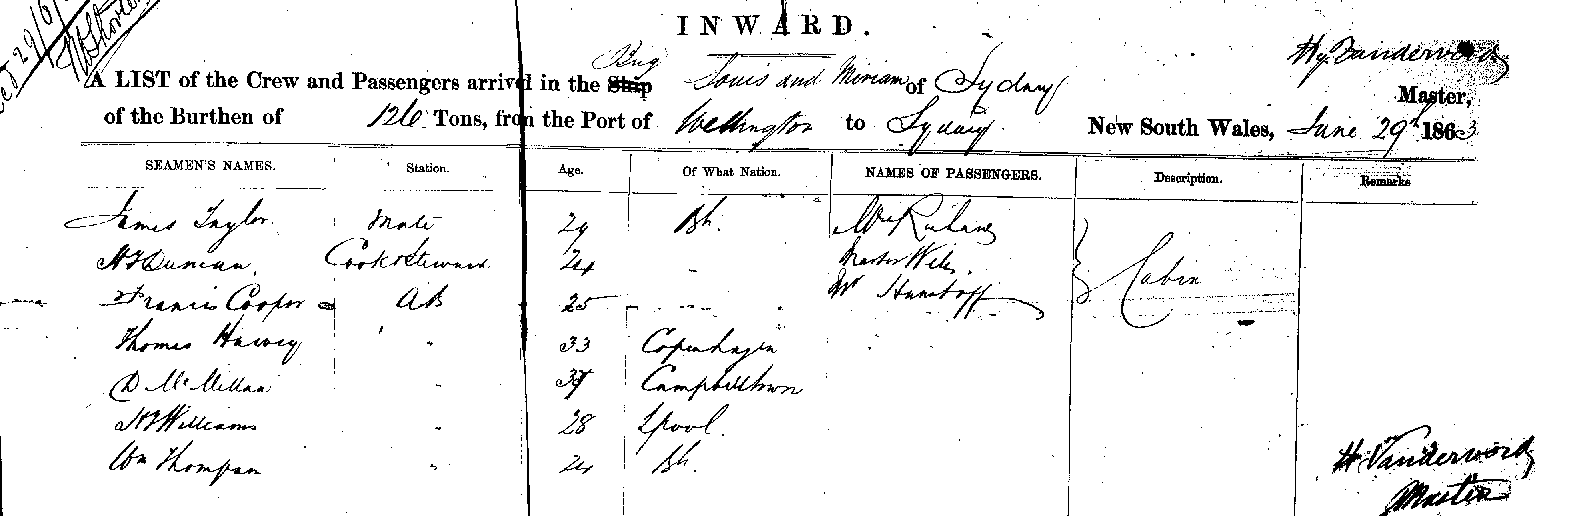 INWARD.
Brig
A LIST of the Crew and Passengers arrived in the Ship Louis and Miriam of Sydney Hy Vanderword Master,
of the Burthen of 126 Tons, from the Port of Wellington to Sydney New South Wales, June 29th 1863
SEAMEN'S NAMES. Station. Age. Of What Nation. NAMES OF PASSENGERS. Description. Remarks
James Taylor Mate 29 Bh. Mr
H Duncan Cook & Steward 24 " Master Cabin
Francis Cooper AB 25 " Mr
Thomas Harvey " 33 Copenhagen
D McMillan " Campbelltown
H Williams " 28 Lpool
Wm Thompson " 24 Bh.
H Vanderword
Master